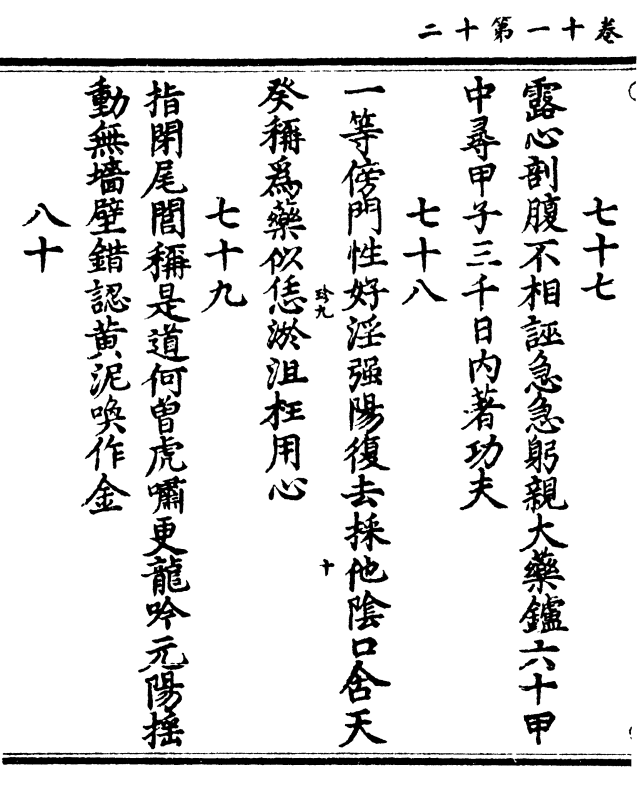 卷十一第十二
七十七
露心剖腹不相誣急急躬親大藥鑪六十甲
中尋甲子三千日內著功夫
七十八
一等傍門性好淫强陽復去採他陰口含天
癸稱爲藥似恁淤沮枉用心
珍九
十
七十九
指閉尾閭稱是道何曾虎嘯更龍吟元陽摇
動無墻壁錯認黃泥喚作金
八十